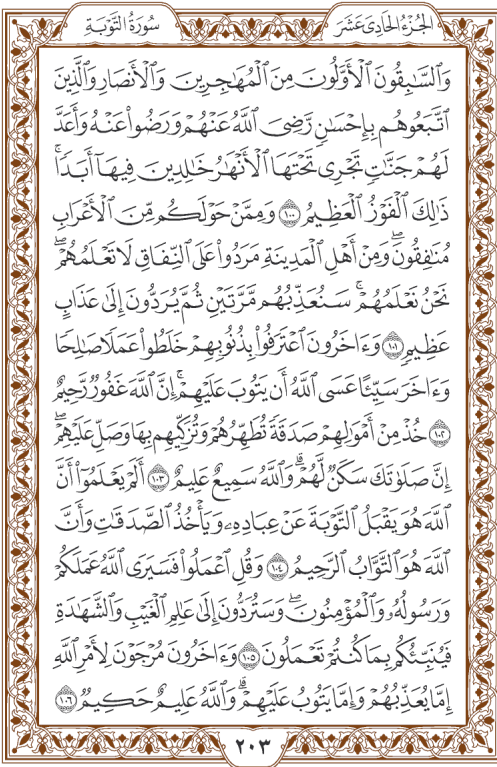 سُورَةُ التَّوْبَةِ
الجُزْءُ الحَادِىَ عَشَرَ
وَٱلسَّٰبِقُونَ ٱلْأَوَّلُونَ مِنَ ٱلْمُهَٰجِرِينَ وَٱلْأَنصَارِ وَٱلَّذِينَ
ٱتَّبَعُوهُم بِإِحْسَٰنٍ رَّضِىَ ٱللَّهُ عَنْهُمْ وَرَضُوا۟ عَنْهُ وَأَعَدَّ
لَهُمْ جَنَّٰتٍ تَجْرِى تَحْتَهَا ٱلْأَنْهَٰرُ خَٰلِدِينَ فِيهَآ أَبَدًا ۚ
ذَٰلِكَ ٱلْفَوْزُ ٱلْعَظِيمُ ١٠٠ وَمِمَّنْ حَوْلَكُم مِّنَ ٱلْأَعْرَابِ
مُنَٰفِقُونَ ۖ وَمِنْ أَهْلِ ٱلْمَدِينَةِ مَرَدُوا۟ عَلَى ٱلنِّفَاقِ لَا تَعْلَمُهُمْ ۖ
نَحْنُ نَعْلَمُهُمْ ۚ سَنُعَذِّبُهُم مَّرَّتَيْنِ ثُمَّ يُرَدُّونَ إِلَىٰ عَذَابٍ
عَظِيمٍ ١٠١ وَءَاخَرُونَ ٱعْتَرَفُوا۟ بِذُنُوبِهِمْ خَلَطُوا۟ عَمَلًا صَٰلِحًا
وَءَاخَرَ سَيِّئًا عَسَى ٱللَّهُ أَن يَتُوبَ عَلَيْهِمْ ۚ إِنَّ ٱللَّهَ غَفُورٌ رَّحِيمٌ
١٠٢ خُذْ مِنْ أَمْوَٰلِهِمْ صَدَقَةً تُطَهِّرُهُمْ وَتُزَكِّيهِم بِهَا وَصَلِّ عَلَيْهِمْ ۖ
إِنَّ صَلَوٰتَكَ سَكَنٌ لَّهُمْ ۗ وَٱللَّهُ سَمِيعٌ عَلِيمٌ ١٠٣ أَلَمْ يَعْلَمُوٓا۟ أَنَّ
ٱللَّهَ هُوَ يَقْبَلُ ٱلتَّوْبَةَ عَنْ عِبَادِهِۦ وَيَأْخُذُ ٱلصَّدَقَٰتِ وَأَنَّ
ٱللَّهَ هُوَ ٱلتَّوَّابُ ٱلرَّحِيمُ ١٠٤ وَقُلِ ٱعْمَلُوا۟ فَسَيَرَى ٱللَّهُ عَمَلَكُمْ
وَرَسُولُهُۥ وَٱلْمُؤْمِنُونَ ۖ وَسَتُرَدُّونَ إِلَىٰ عَٰلِمِ ٱلْغَيْبِ وَٱلشَّهَٰدَةِ
فَيُنَبِّئُكُم بِمَا كُنتُمْ تَعْمَلُونَ ١٠٥ وَءَاخَرُونَ مُرْجَوْنَ لِأَمْرِ ٱللَّهِ
إِمَّا يُعَذِّبُهُمْ وَإِمَّا يَتُوبُ عَلَيْهِمْ ۗ وَٱللَّهُ عَلِيمٌ حَكِيمٌ ١٠٦
٢٠٣